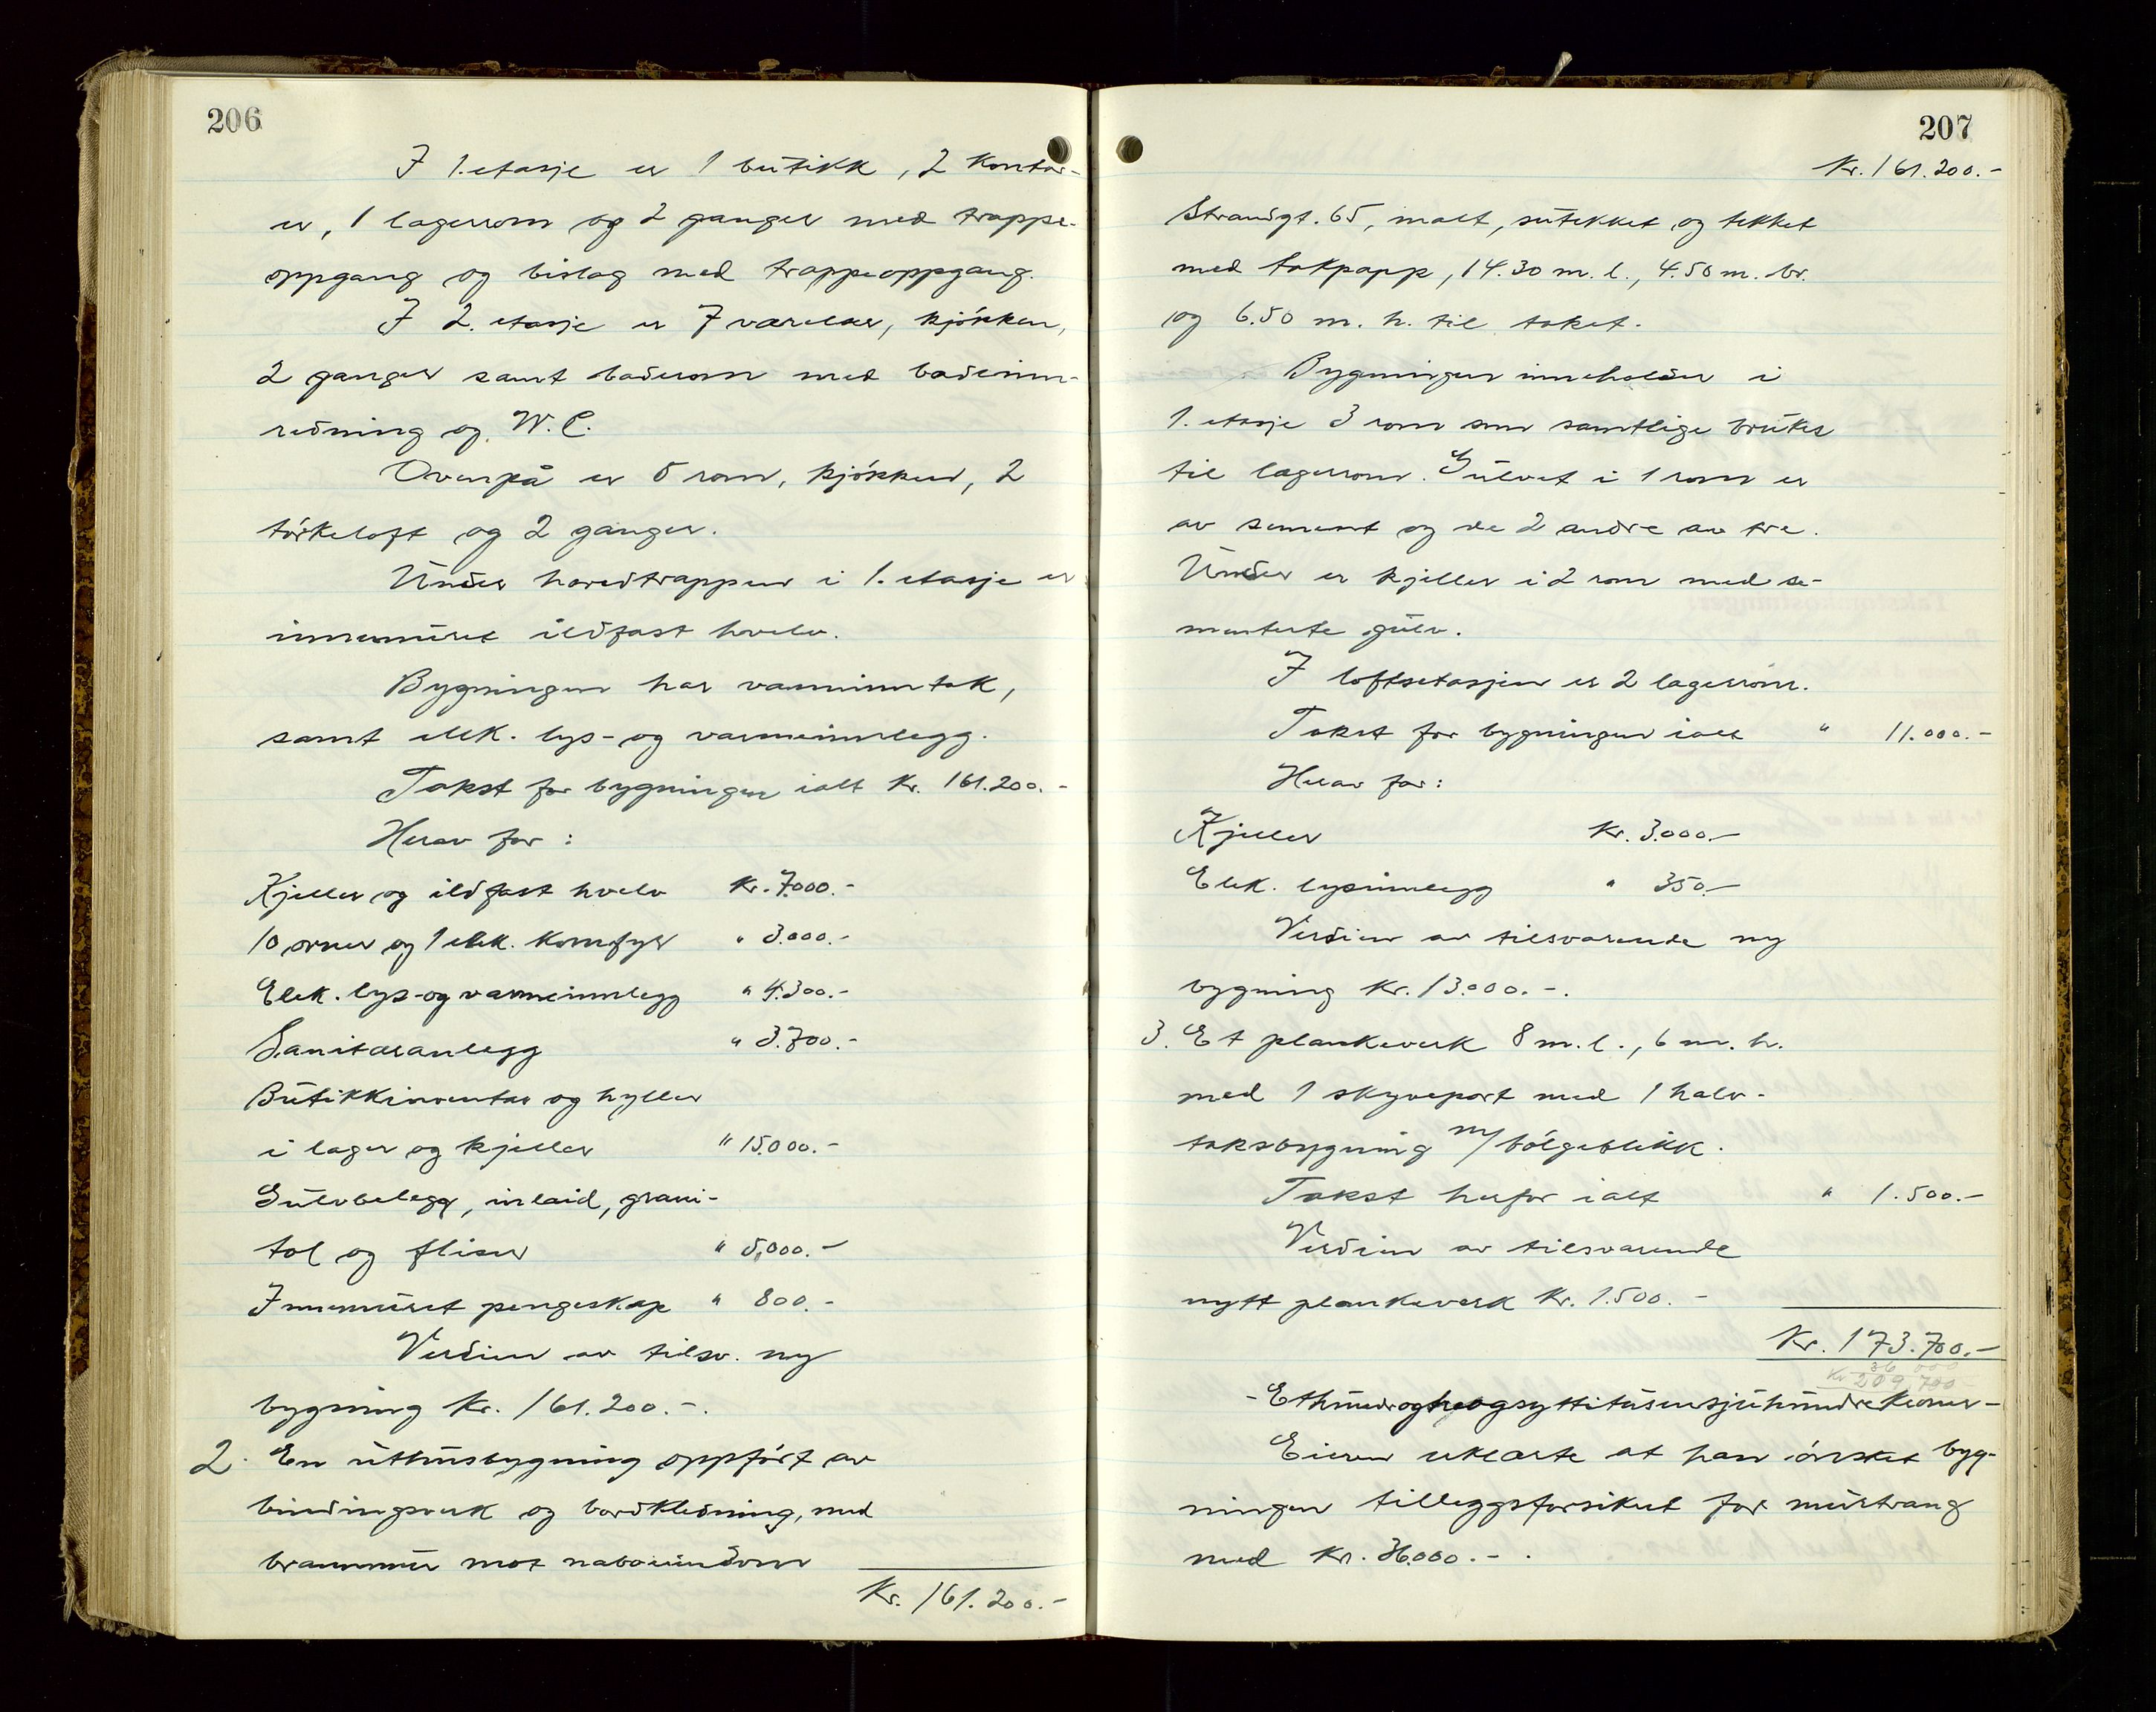 206
I 1. etasje er 1 butikk, 2 kontor-
er, 1 lagerrom og 2 ganger med trappe-
oppgang og bislag med trappeoppgang.
I 2. etasje er 7 værelser, kjøkken,
2 ganger samt baderom med badeinn-
redning og W.C.
Ovenpå er 5 rom, kjøkken, 2
tørkeloft og 2 ganger.
Under hovedtrappen i 1. etasje er
innemuret ildfast hvelv.
Bygningen har vanninntak,
samt elek. lys- og varmeinnlegg.
Takst for bygningen ialt Kr. 161.200.-
Herav for:
Kjeller og ildfast hvelv Kr. 7.000.-
10 ovner og 1 elek. komfyr " 3.000.-
Elek. lys- og varmeinnlegg " 4.300.-
Sanitæranlegg " 3.700.-
Butikkinventar og hyller
i lager og kjeller " 15.000.-
Gulvbelegg, inlaid, grani-
tol og fliser " 5.000.-
Innemuret pengeskap " 800.-
Verdien av tilsv. ny
bygning Kr. 161.200.-.
2. En uthusbygning oppført av
bindingsverk og bordkledning, med
brannmur mot naboeiendom
Kr. 161.200.-
207
Kr. 161.200.-
Strandgt. 65, malt, sutekket og tekket
med takpapp, 14.30 m. l., 4.50 m. br.
og 6.50 m. h. til taket.
Bygningen inneholder i
1. etasje 3 rom som samtlige brukes
til lagerrom. Gulvet i 1 rom er
av sement og de 2 andre av tre.
Under er kjeller i 2 rom med se-
menterte gulv.
I loftsetasjen er 2 lagerrom.
Takst for bygningen ialt " 11.000.-
Herav for:
Kjeller Kr. 3.000.-
Elek. lysinnlegg " 350.-
Verdien av tilsvarende ny
bygning Kr. 13.000.-.
3. Et plankeverk 8 m. l., 6 m. h.
med 1 skyveport med 1 halv-
taksbygning m/bølgeblikk.
Takst herfor ialt " 1.500.-
Verdien av tilsvarende
nytt plankeverk Kr. 1.500.-
Kr. 173.700.-
36 000
Kr 209 700
- Ethundreogtreogsyttitusensjuhundre Kroner -
Eieren erklærte at han ønsket byg-
ningen tilleggsforsikret for murtvang
med Kr. 36.000.-.